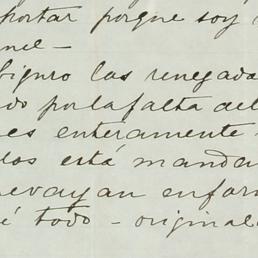 portar porque soy
nel -
Siguro las renegada
do por la falta del
es enteramente
los está manda
nevayan enfor
é todo - original